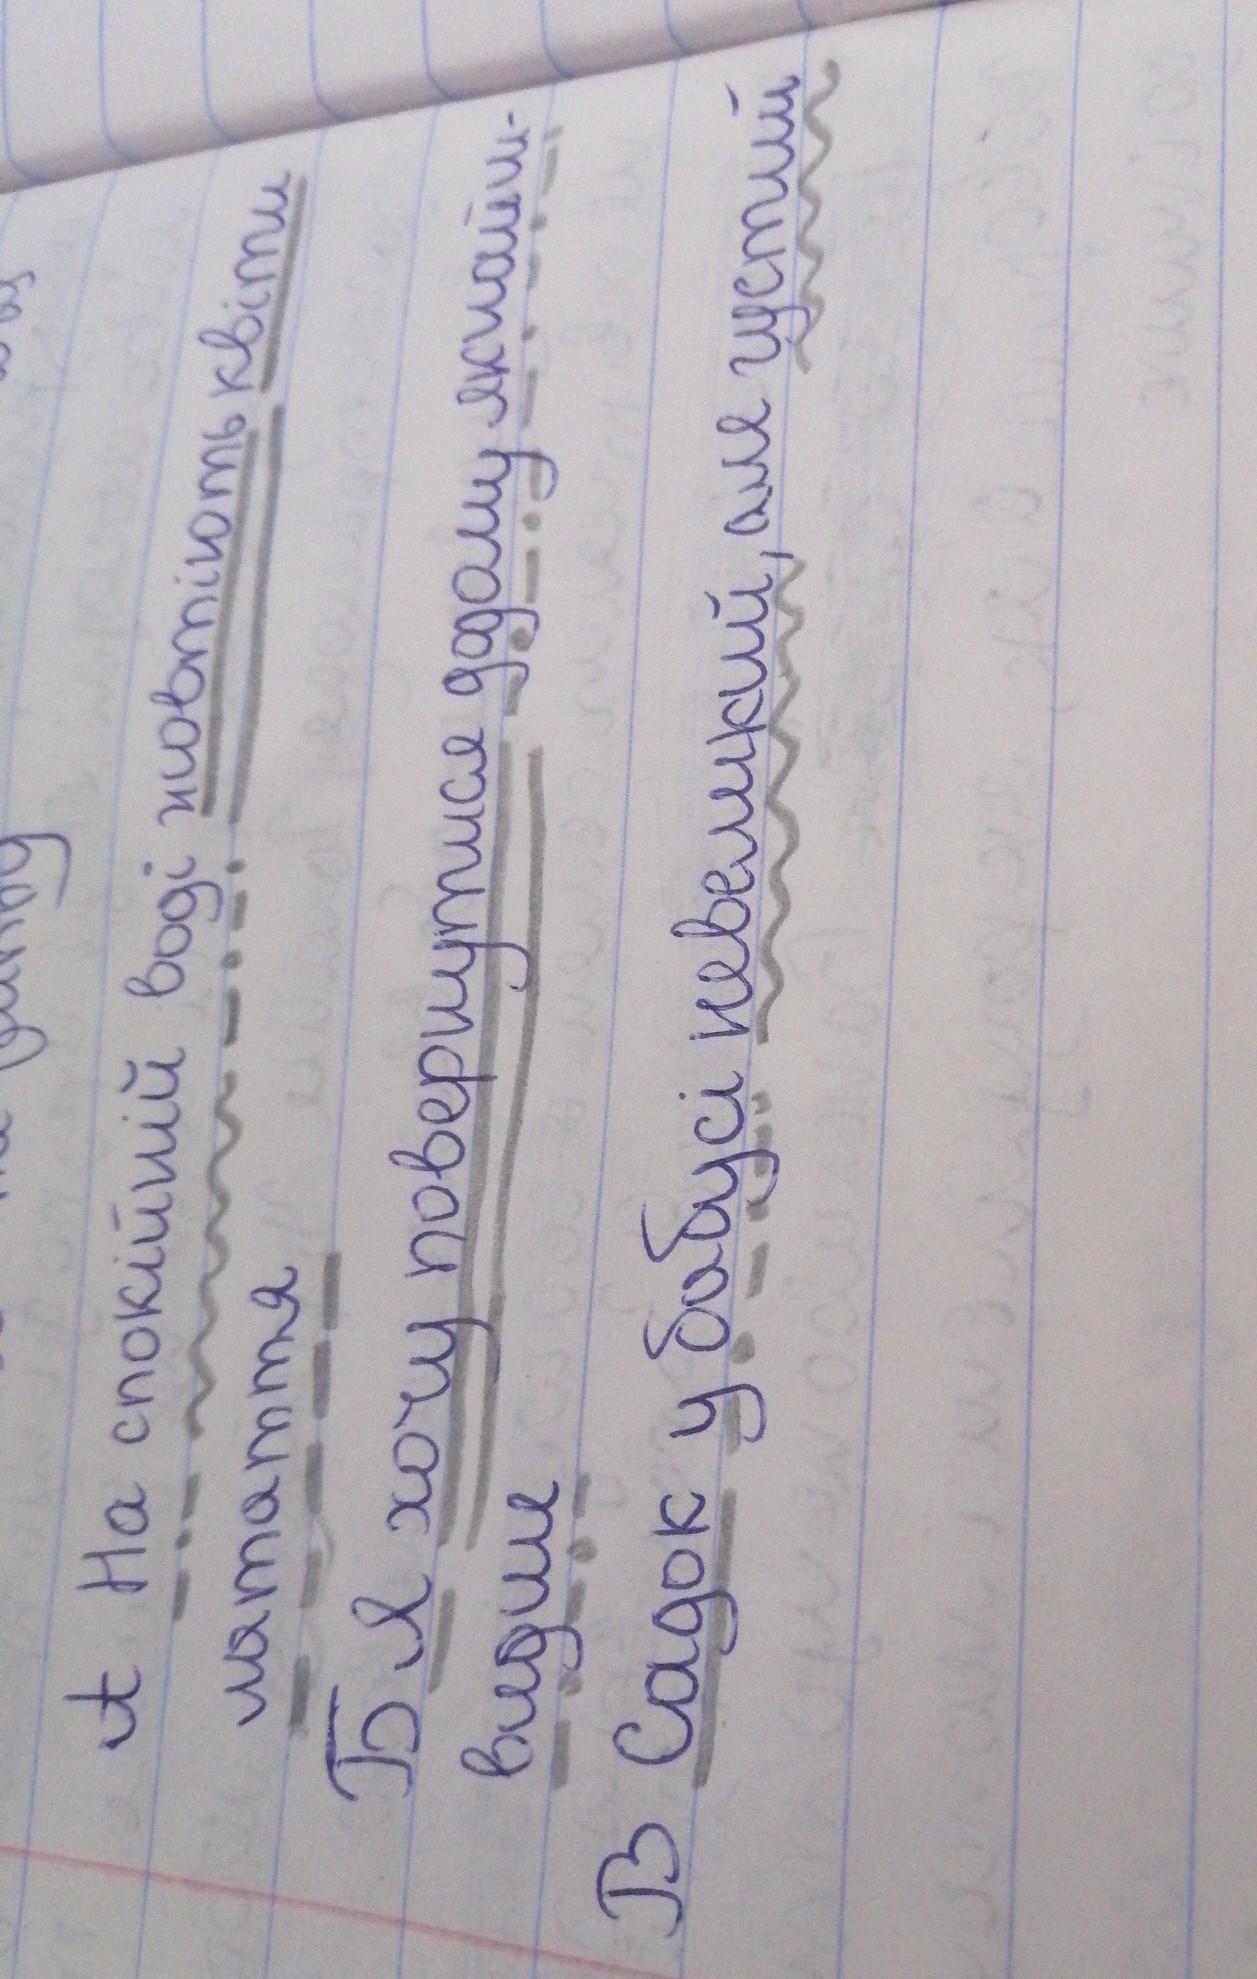 А На спокійній воді жовтіють квіти
латаття
Б Я хочу повернутися додому якнайш-
видше
В Садок у бабусі невеликий, але густий